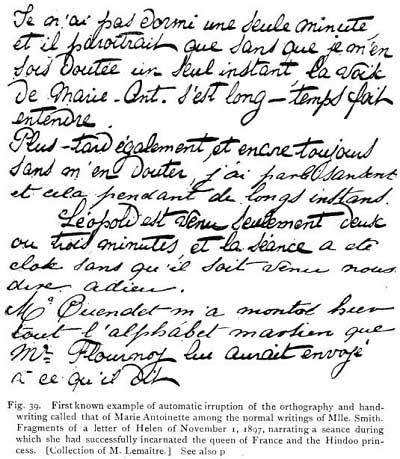 Je n'ai pas dormi une seule minute
et il paroîtrait que sans que je m'en
sois doutée un seul instant la voix
de Marie-Ant. s'est long-temps fait
entendre.
Plus-tard également, et encore toujours
sans m'en douter, j'ai parlé sanscrit
et cela pendant de longs instans.
Léopold est venu seulement deux
ou trois minutes et la séance a été
close sans qu'il soit venu nous
dire adieu.
Mr. Cuendet m'a montré hier
tout l'alphabet martien que
Mr. Flournoy lui aurait envoyé
à ce qu'il dit
Fig. 39. First known example of automatic irruption of the orthography and hand-
writing called that of Marie Antoinette among the normal writings of Mlle. Smith.
Fragments of a letter of Helen of November 1, 1897, narrating a seance during
which she had successfully incarnated the queen of France and the Hindoo prin-
cess. [Collection of M. Lemaître.] See also p